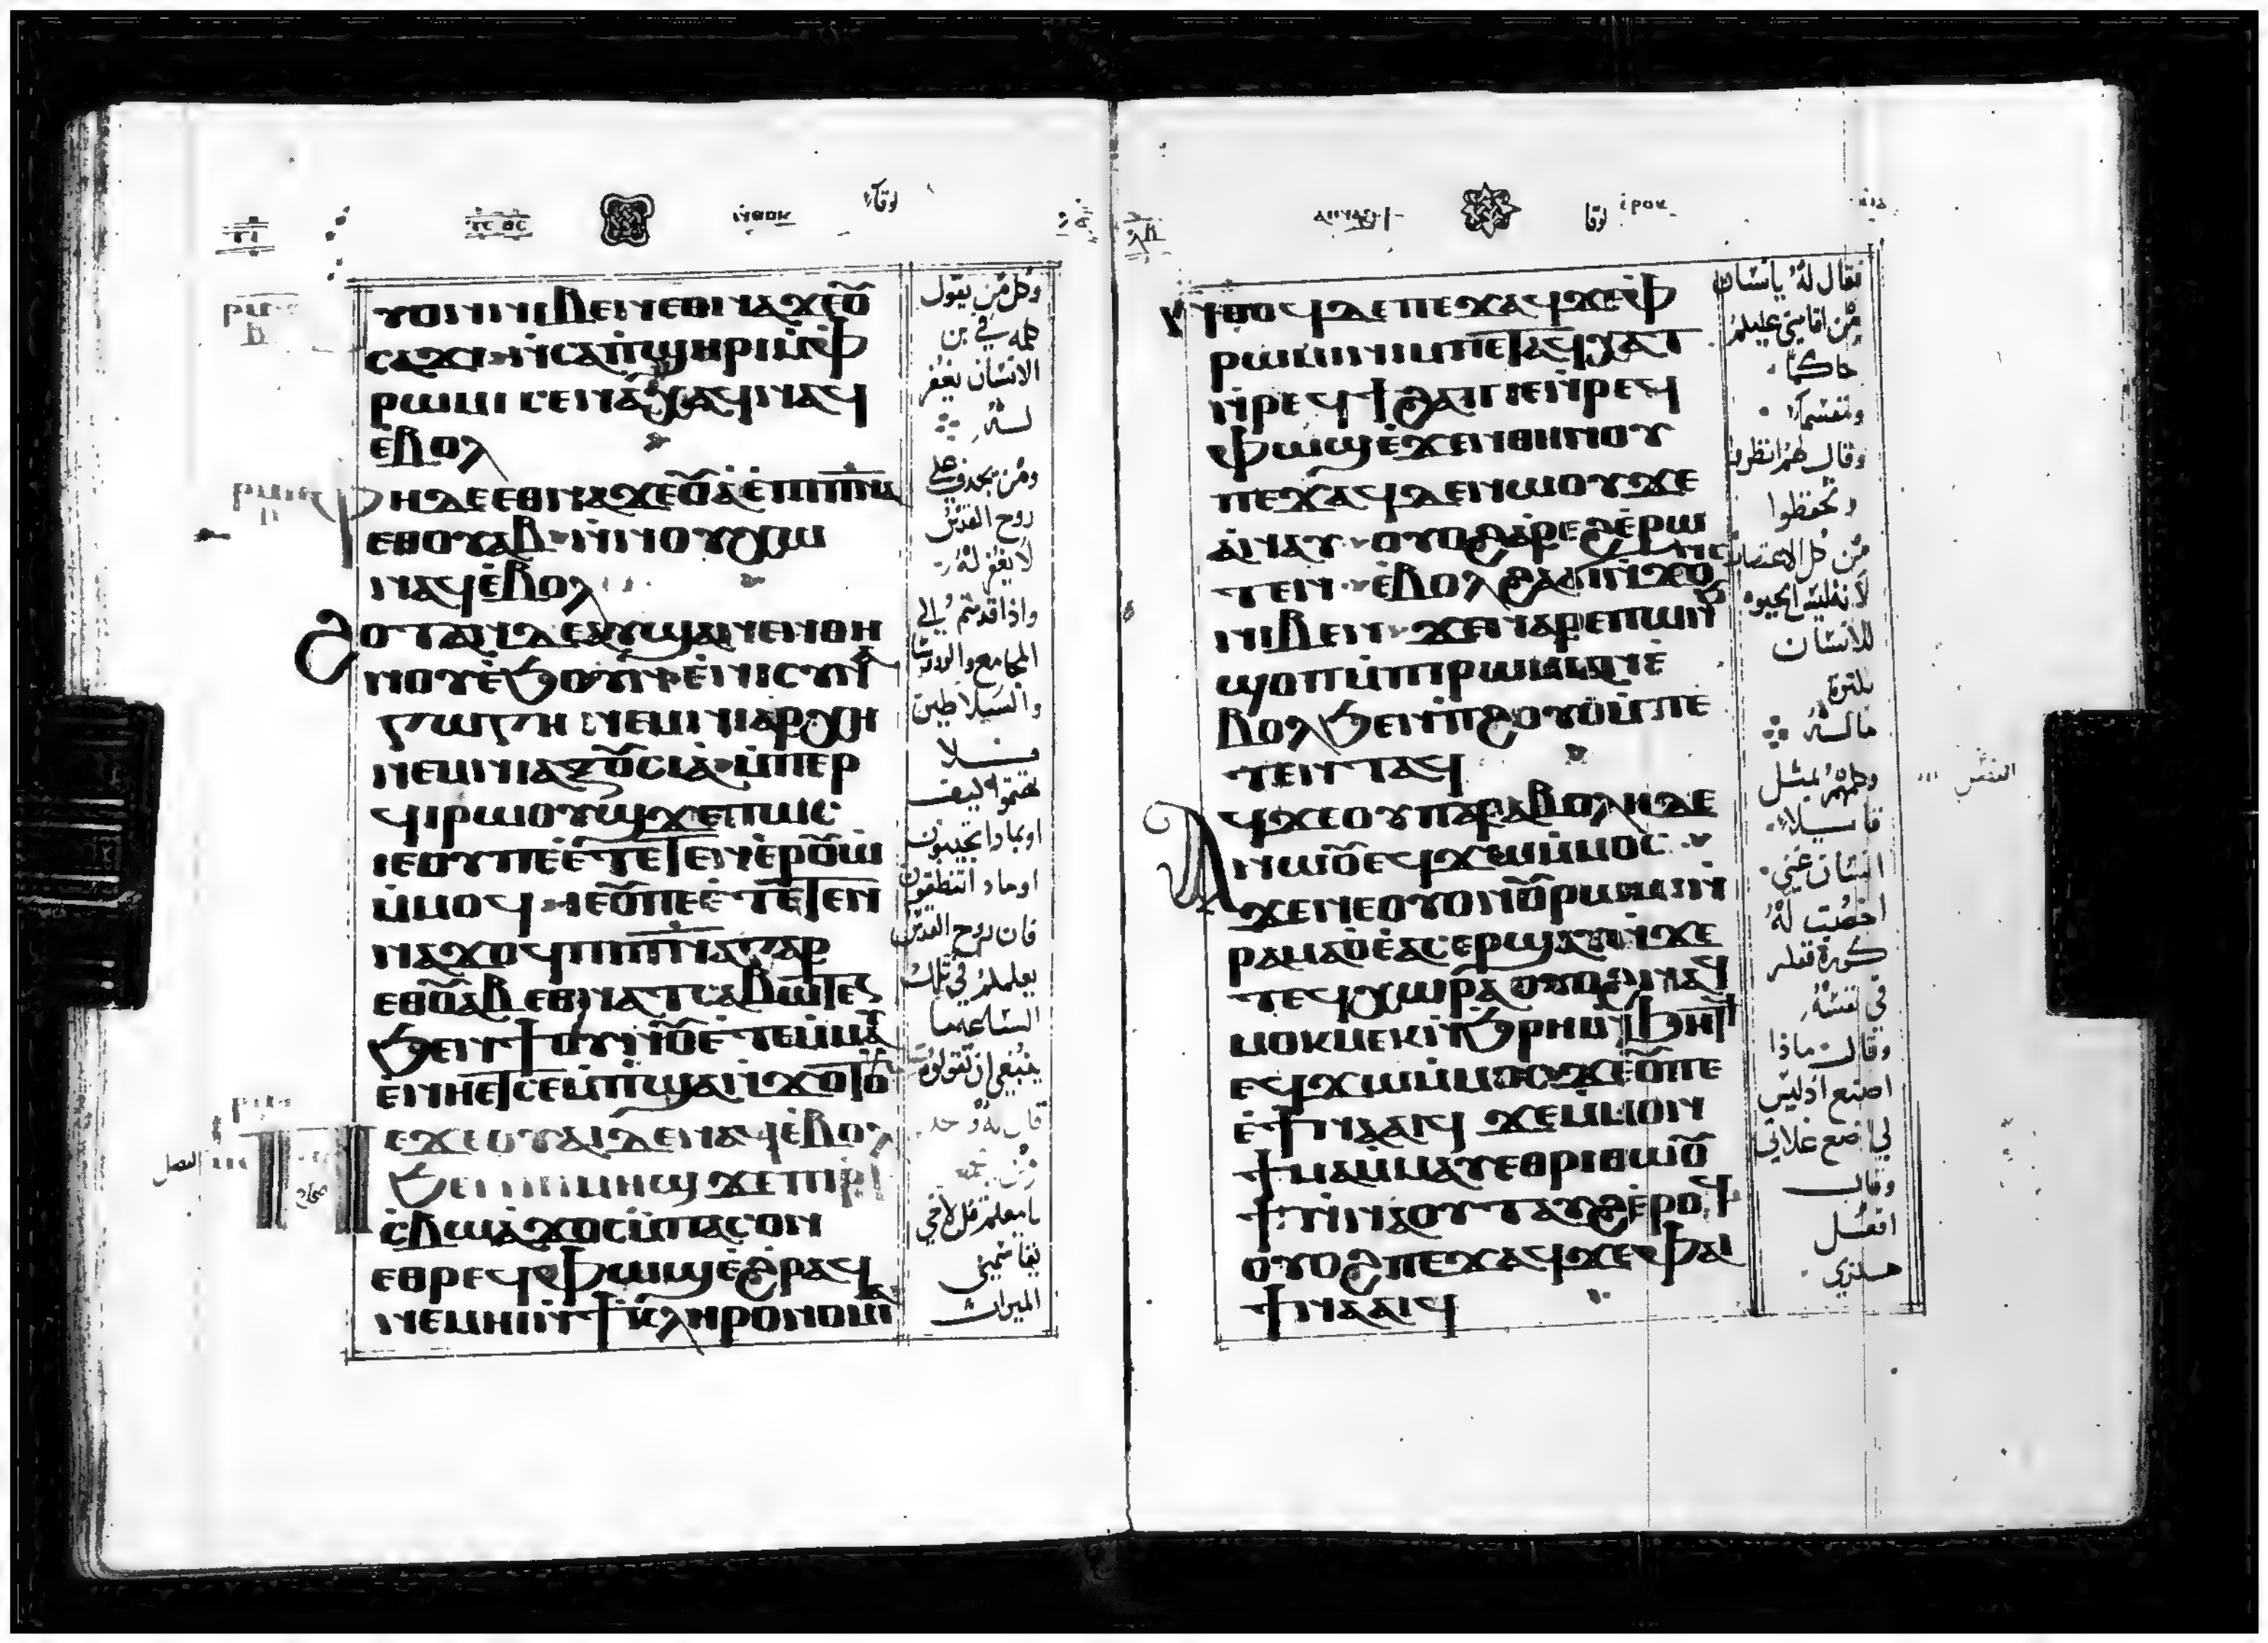 لوقا
ⲟⲩⲟⲛⲛⲓⲃⲉⲛⲉⲑⲛⲁϫⲉⲟⲩ
ⲥⲁϫⲓⲛ̀ⲥⲁⲡϣⲏⲣⲓⲙ̀ⲫ
ⲣⲱⲙⲓ ⲥⲉⲛⲁⲭⲁϥⲛⲁϥ
ⲉⲃⲟⲗ
ⲫⲏⲇⲉⲉⲑⲛⲁϫⲉⲟⲩⲁⲉ̀ⲡⲓⲡ̅ⲛ̅ⲁ̅
ⲉⲑⲟⲩⲁⲃ ⲛ̀ⲛⲟⲩⲭⲱ
ⲛⲁϥⲉ̀ⲃⲟⲗ
ϩⲟⲧⲁⲛⲇⲉⲁⲩϣⲁⲛⲉⲛⲑⲏ
ⲛⲟⲩⲉ̀ϧⲟⲩⲛⲉ̀ⲛⲓⲥⲩⲛⲁ
ⲅⲱⲅⲏ ⲛⲉⲙⲛⲓⲁⲣⲭⲏ
ⲛⲉⲙⲛⲓⲉⲝⲟⲩⲥⲓⲁ ⲙ̀ⲡⲉⲣ
ϥⲓⲣⲱⲟⲩϣϫⲉⲡⲱⲥ
ⲓⲉⲟⲩⲡⲉⲉ̀ⲧⲉⲧⲉⲛⲛⲉⲣⲟⲩⲱ
ⲙ̀ⲙⲟϥ ⲓⲉⲟⲩⲡⲉⲉ̀ⲧⲉⲧⲉⲛ
ⲛⲁϫⲟϥ ⲡⲓⲡ̅ⲛ̅ⲁ̅ⲅⲁⲣ
ⲉⲑⲟⲩⲁⲃ ⲉⲑⲛⲁⲧⲥⲁⲃⲱⲧⲉⲛ
ϧⲉⲛϯⲟⲩⲛⲟⲩⲉ̀ⲧⲉⲙⲙⲁⲩ
ⲉ̀ⲛⲏⲉⲧⲥⲉⲙ̀ⲡϣⲁⲛ̀ϫⲟⲧⲟⲩ
ⲡⲉϫⲉⲟⲩⲁⲓⲇⲉⲛⲁϥⲉ̀ⲃⲟⲗ
ϧⲉⲛⲡⲓⲙⲏϣ ϫⲉⲡⲓⲣⲉϥϯ
ⲥⲃⲱ ⲁ̀ϫⲟⲥⲙ̀ⲡⲁⲥⲟⲛ
ⲉⲑⲣⲉϥⲫⲱϣⲉ̀ϩⲣⲁϥ
ⲛⲉⲙⲏⲓⲛ̀ϯⲕⲗⲏⲣⲟⲛⲟⲙⲓⲁ
وكل من يقول
كلمه في بن
الانسان يغفر
له
ومن يجدف على
روح القدس
لا يغفر له
واذا قدمتم الى
المجامع والولاة
والسلاطين
فلا
تهتموا كيف
او بماذا تجيبون
او ماذا تنطقون
فان روح القدس
يعلمكم في تلك
الساعه ما
ينبغي ان تقولوه
قال له واحد
من الجمع
يا معلم قل لاخي
يقاسمني
الميراث
لوقا
ⲛ̀ⲑⲟϥⲇⲉⲡⲉϫⲁϥϫⲉⲫ
ⲣⲱⲙⲓⲛⲓⲙⲡⲉⲧⲁϥⲭⲁⲧ
ⲛ̀ⲣⲉϥϯϩⲁⲡⲓⲉⲛ̀ⲣⲉϥ
ⲫⲱϣⲉ̀ϫⲉⲛⲑⲏⲛⲟⲩ
ⲡⲉϫⲁϥⲇⲉⲛⲱⲟⲩϫⲉ
ⲁ̀ⲛⲁⲩ ⲟⲩⲟϩⲁⲣⲉϩⲉ̀ⲣⲱ
ⲧⲉⲛ ⲉ̀ⲃⲟⲗϩⲁϭⲓⲛ̀ϫⲟⲛⲥ
ⲛⲓⲃⲉⲛ ϫⲉⲛⲁⲣⲉⲡⲱⲛϧ
ϣⲟⲡⲙ̀ⲡⲓⲣⲱⲙⲓⲁⲛⲉ̀
ⲃⲟⲗϧⲉⲛⲡ̀ϩⲟⲩⲟⲙ̀ⲡⲉ
ⲧⲉⲛⲧⲁϥ
ⲁϥϫⲉⲟⲩⲡⲁⲣⲁⲃⲟⲗⲏⲇⲉ
ⲛⲱⲟⲩⲉϥϫⲱⲙ̀ⲙⲟⲥ
ϫⲉⲛⲉⲟⲩⲟⲛⲟⲩⲣⲱⲙⲓⲛ
ⲣⲁⲙⲁⲟⲉ̀ⲁⲥⲉⲣϣⲁⲩⲛ̀ϫⲉ
ⲧⲉϥⲭⲱⲣⲁ ⲟⲩⲟϩⲛⲁϥ
ⲙⲟⲕⲙⲉⲕⲛ̀ϧⲣⲏⲓⲛ̀ϧⲏⲧϥ
ⲉϥϫⲱⲙ̀ⲙⲟⲥϫⲉⲟⲩⲡⲉ
ⲉ̀ϯⲛⲁⲁⲓϥ ϫⲉⲙ̀ⲙⲟⲛ
ϯⲙⲁⲙ̀ⲙⲁⲩⲉⲑⲣⲓⲑⲱⲟⲩ
ϯⲛ̀ⲛⲁⲟⲩⲧⲁϩⲉ̀ⲣⲟϥ
ⲟⲩⲟϩⲡⲉϫⲁϥϫⲉⲫⲁⲓ
ϯⲛⲁⲁⲓϥ
فقال له يا انسان
من اقامني عليكم
حاكما
ومقسما
وقال لهم انظروا
وتحفظوا
من كل الاغتصاب
لا نه ليست الحيوه
للانسان
بكثرة
ماله
وكلمهم بمثل
قايلا
انسان غني
اخصبت له
كورة ففكر
في نفسه
وقال ماذا
اصنع اذ ليس
لي اضع غلاتي
وقال
افعل
هكذى